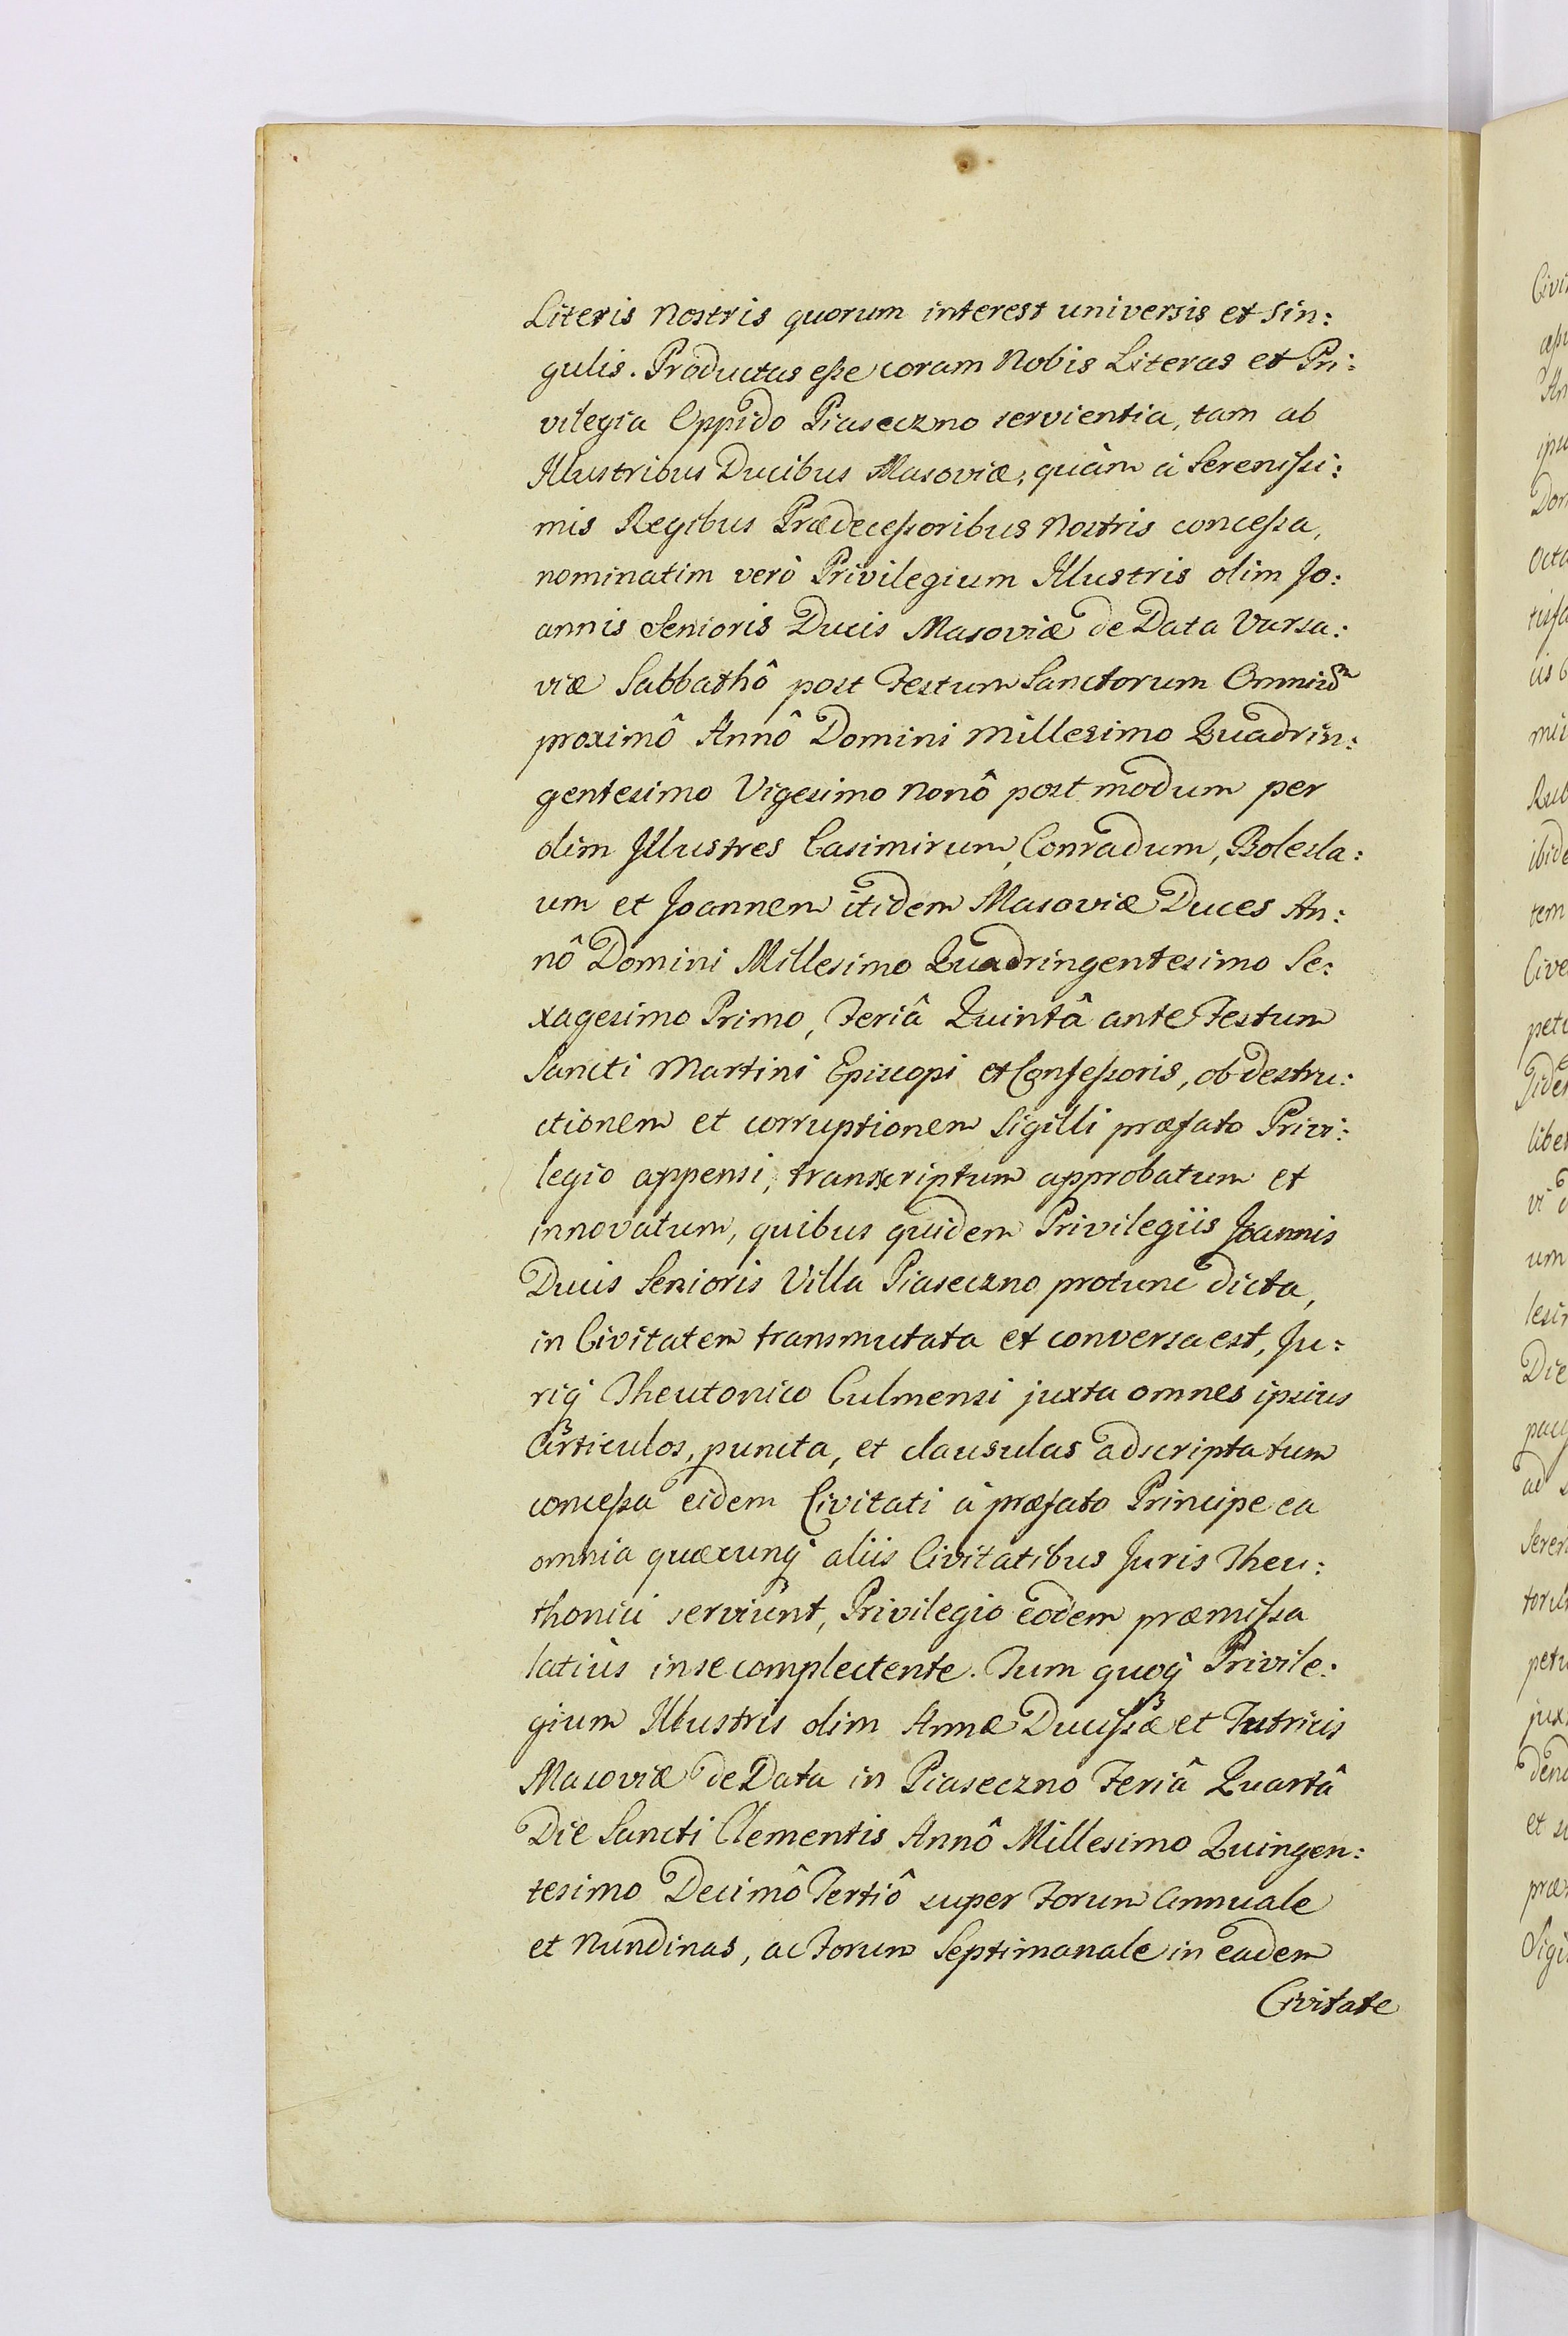 Literis Nostris quorum interest universis et sin:
gulis. Productas eße coram Nobis Literas et Pri:
vilegia Oppido Piaseczno servientia, tam ab
Illustribus Ducibus Masoviæ, quàm à Serenißi:
mis Regibus Prædeceßoribus Nostris conceßa,
nominatim verò Privilegium Illustris olim Jo:
annis Senioris Ducis Masoviæ de Data Varsa:
viæ Sabbathô post Festum Sanctorum Omniũ
proximô Annô Domini Millesimo Quadrin:
gentesimo Vigesimo Nonô post modum per
olim Illustres Casimirum, Conradum, Bolesla:
um et Joannem itidem Masoviæ Duces An:
nô Domini Millesimo Quadringentesimo Se:
xagesimo Primo, Feriâ Quintâ ante Festum
Sancti Martini Episcopi et Confeßoris, ob destru:
ctionem et corruptionem Sigilli præfato Privi:
legio appensi, transcriptum approbatum et
innovatum, quibus quidem Privilegiis Joannis
Ducis Senioris Villa Piaseczno protunc dicta,
in Civitatem transmutata et conversa est, Ju:
riq́ Theutonico Culmensi juxta omnes ipsius
Articulos, puncta, et clausulas adscripta tum
conceßa eidem Civitati à præfato Principe ea
omnia quæcunq́ aliis Civitatibus Juris Theu:
thonici serviunt, Privilegio eodem præmißa
latius in se complectente. Tum quoq́ Privile:
gium Illustris olim Annæ Ducißæ et Tutricis
Masoviæ de Data in Piaseczno Feriâ Quartâ
Die Sancti Clementis Annô Millesimo Quingen:
tesimo Decimô Tertiô super Forum Annuale
et Nundinas, ac Forum Septimanale in eadem
Civitate